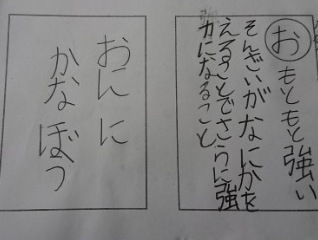 お
もともと強い
そんざいがなにかを
えることでさらに強
力になること
おにに
かなぼう